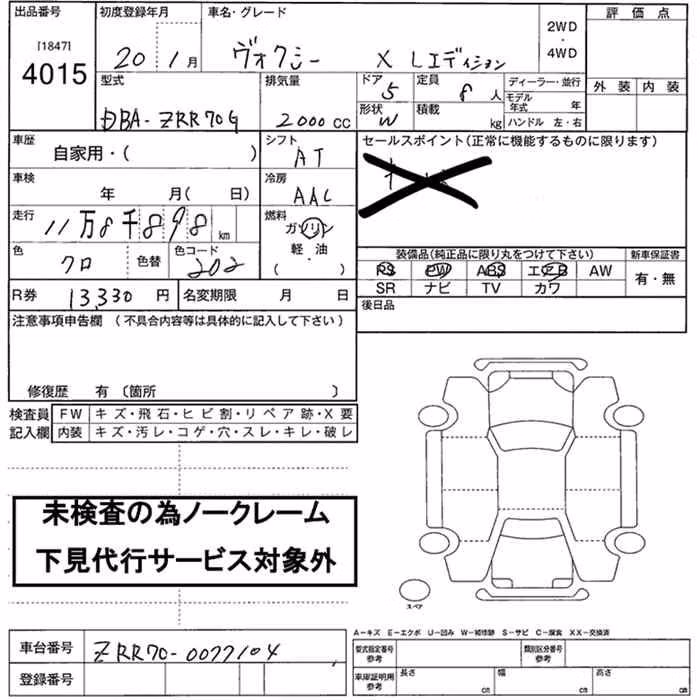 出品番号
[1847]
4015
初度登録年月
20年 1月
車名・グレード
ヴォクシー X Lエディション
2WD
・
4WD
評価点
外装 内装
型式
DBA-ZRR70G
排気量
2000 CC
ドア 5
形状 W
定員 8 人
積載 kg
ディーラー・並行
モデル年式 年
ハンドル 左・右
車歴
自家用・( )
シフト
AT
車検
年 月( 日)
冷房
AAC
走行
11万8千898 km
燃料
ガソリン
軽・油
( ・ )
色
クロ
色替
色コード
202
R券 13,330 円
名変期限 月 日
セールスポイント(正常に機能するものに限ります)
装備品(純正品に限り丸をつけて下さい)
PS PW ABS エアB AW
SR ナビ TV カワ
新車保証書
有・無
後日品
注意事項申告欄 (不具合内容等は具体的に記入して下さい)
修復歴 有 〔箇所 〕
検査員記入欄
FW キズ・飛石・ヒビ割・リペア跡・X要
内装 キズ・汚レ・コゲ・穴・スレ・キレ・破レ
未検査の為ノークレーム
下見代行サービス対象外
スペア
A－キズ E－エクボ U－凹み W－補修跡 S－サビ C－腐食 XX－交換済
車台番号 ZRR70-0077104
登録番号
型式指定番号参考
類別区分番号参考
車庫証明用参考
長さ cm
幅 cm
高さ cm